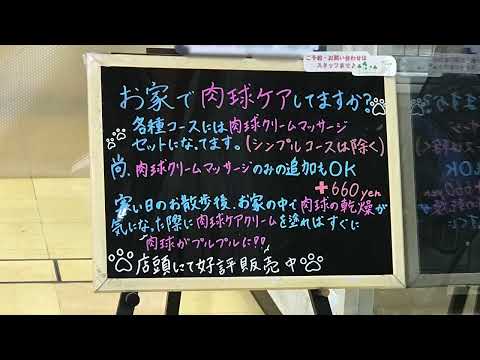 ご予約・お問い合わせは
スタッフまで♪
お家で肉球ケアしてますか?
各種コースには肉球クリームマッサージ
セットになってます。(シンプルコースは除く)
尚、肉球クリームマッサージのみの追加もOK
+660yen
寒い日のお散歩後、お家の中で肉球の乾燥が
気になった際に肉球ケアクリームを塗ればすぐに
肉球がプルプルに!?
店頭にて好評販売中